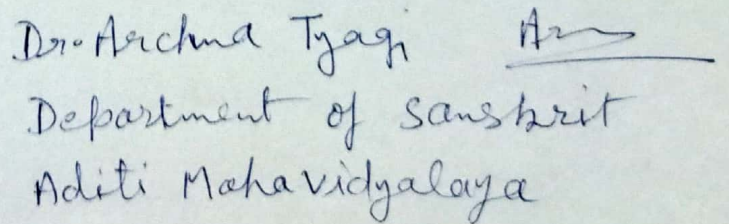 Dr. Archna Tyagi
Department of Sanskrit
Aditi Mahavidyalaya